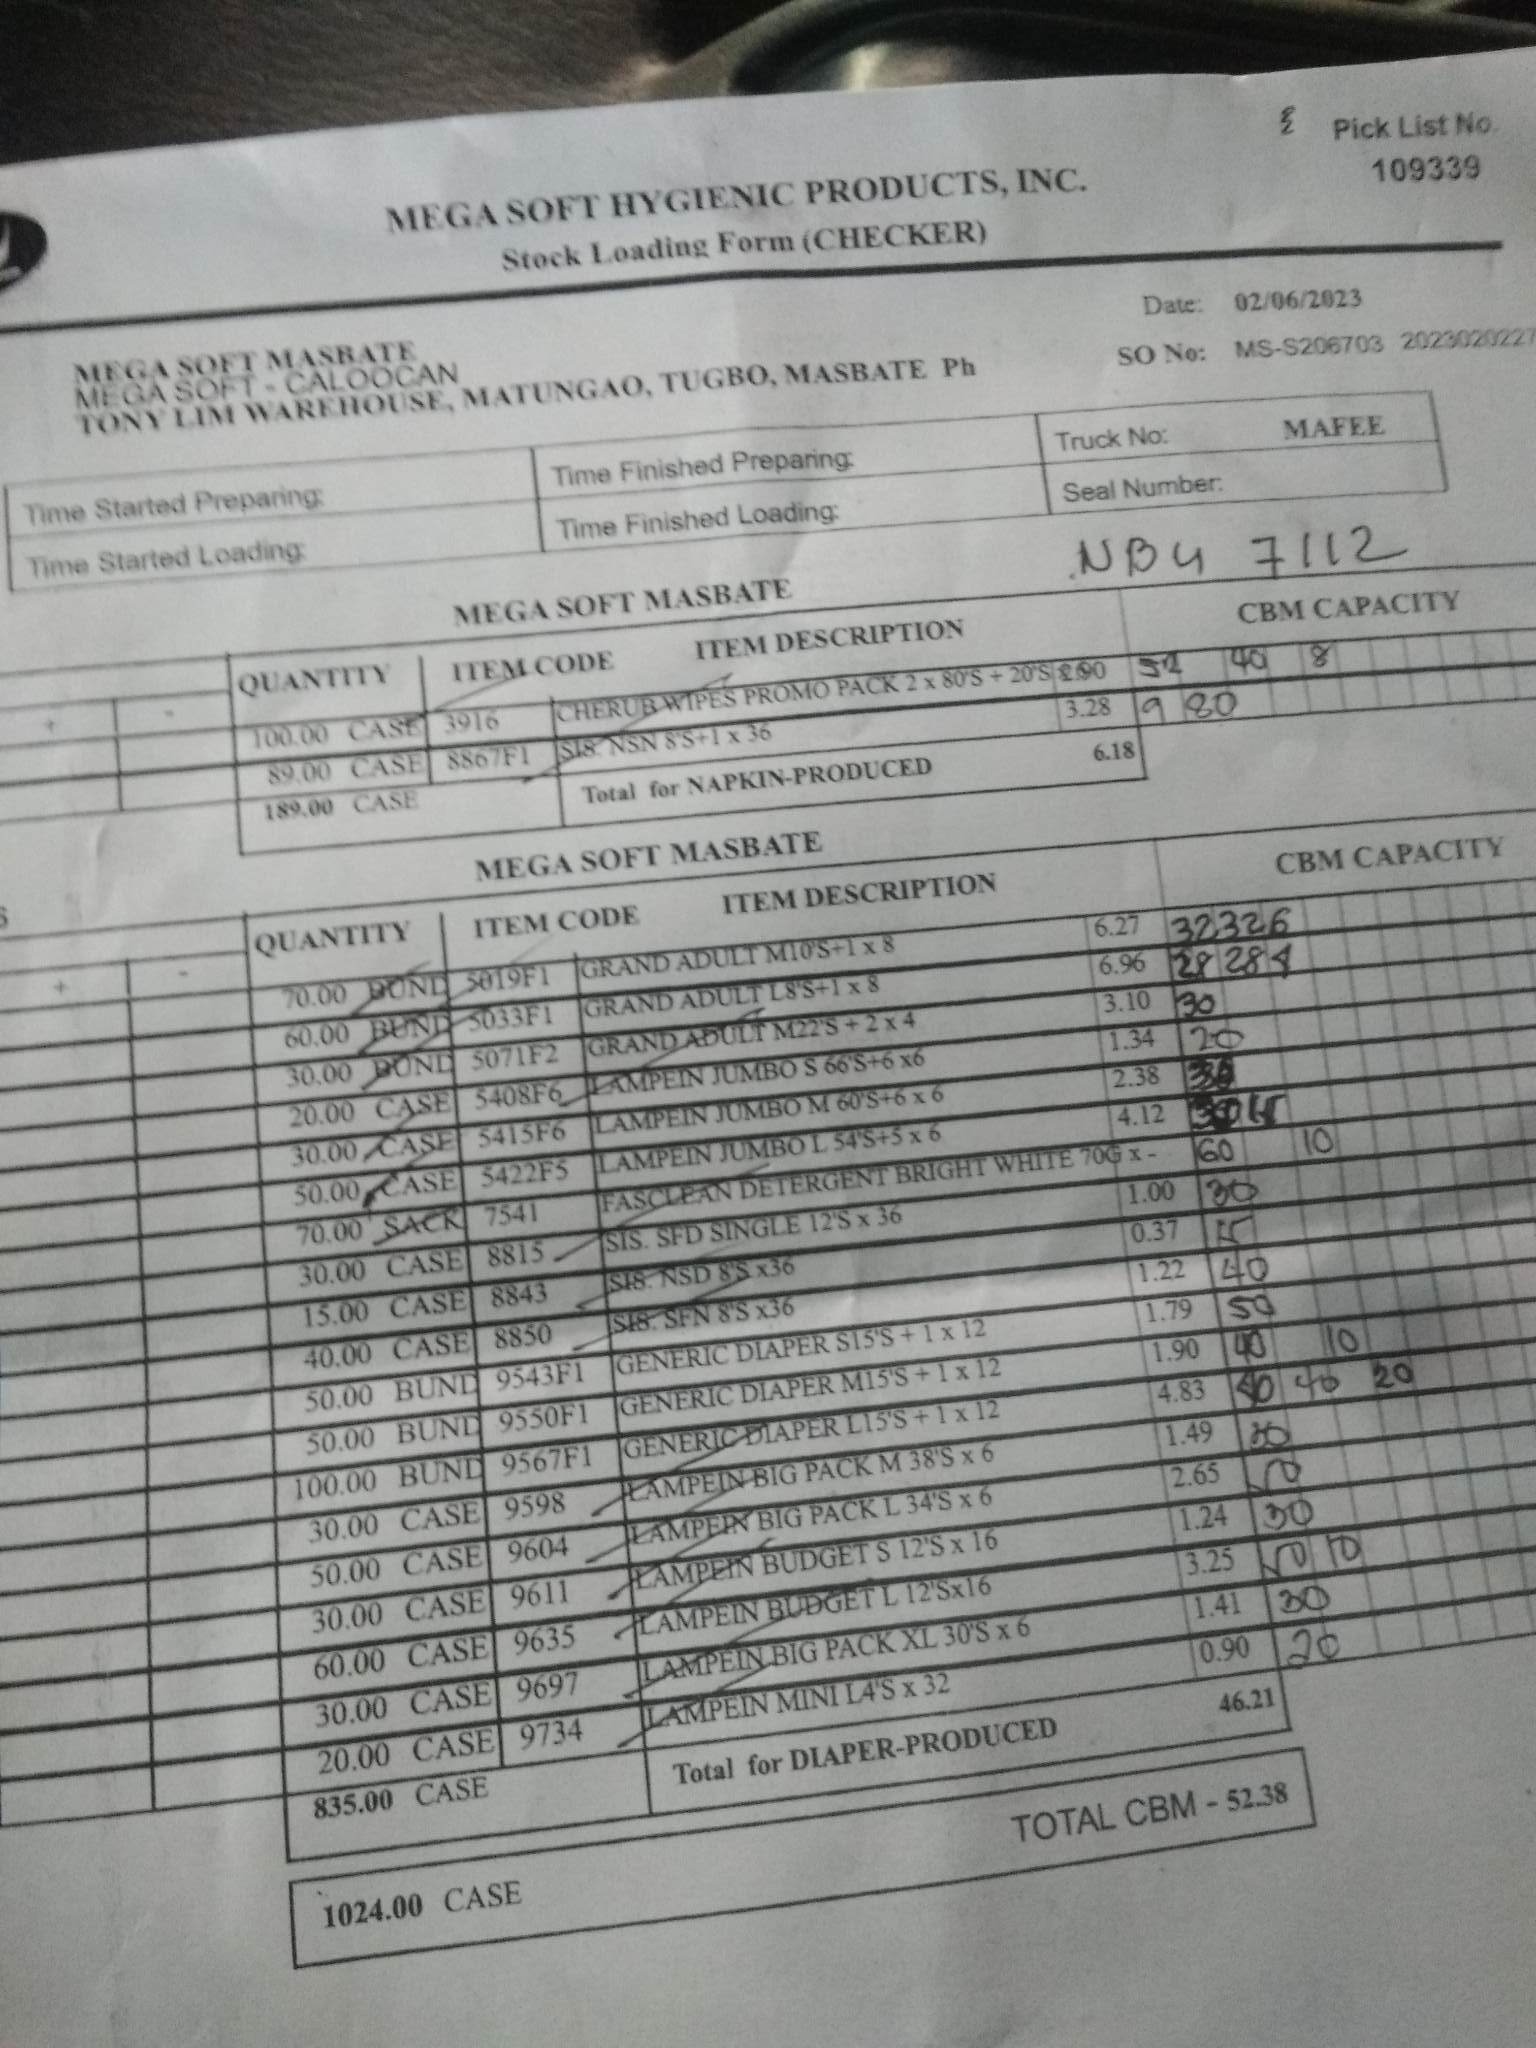 Pick List No.
109339
MEGA SOFT HYGIENIC PRODUCTS, INC.
Stock Loading Form (CHECKER)
Date: 02/06/2023
SO No: MS-S206703 2023020227
MEGA SOFT MASBATE
MEGA SOFT - CALOOCAN
TONY LIM WAREHOUSE, MATUNGAO, TUGBO, MASBATE Ph
Time Started Preparing: Time Finished Preparing: Truck No: MAFEE
Time Started Loading: Time Finished Loading: Seal Number:
NBU 7112
MEGA SOFT MASBATE
QUANTITY ITEM CODE ITEM DESCRIPTION CBM CAPACITY
+ -
100.00 CASE 3916 CHERUB WIPES PROMO PACK 2 x 80'S + 20'S 2.90 52 40 8
89.00 CASE 8867F1 SIS. NSN 8'S+1 x 36 3.28 9 80
189.00 CASE Total for NAPKIN-PRODUCED 6.18
MEGA SOFT MASBATE
QUANTITY ITEM CODE ITEM DESCRIPTION CBM CAPACITY
+ -
70.00 BUND 5019F1 GRAND ADULT M10'S+1 x 8 6.27 32 32 6
60.00 BUND 5033F1 GRAND ADULT L8'S+1 x 8 6.96 28 28 4
30.00 BUND 5071F2 GRAND ADULT M22'S + 2 x 4 3.10 30
20.00 CASE 5408F6 LAMPEIN JUMBO S 66'S+6 x6 1.34 20
30.00 CASE 5415F6 LAMPEIN JUMBO M 60'S+6 x 6 2.38 30
50.00 CASE 5422F5 LAMPEIN JUMBO L 54'S+5 x 6 4.12
70.00 SACK 7541 FASCLEAN DETERGENT BRIGHT WHITE 70G x - 60 10
30.00 CASE 8815 SIS. SFD SINGLE 12'S x 36 1.00 30
15.00 CASE 8843 SIS. NSD 8'S x36 0.37 15
40.00 CASE 8850 SIS. SFN 8'S x36 1.22 40
50.00 BUND 9543F1 GENERIC DIAPER S15'S + 1 x 12 1.79 50
50.00 BUND 9550F1 GENERIC DIAPER M15'S + 1 x 12 1.90 40 10
100.00 BUND 9567F1 GENERIC DIAPER L15'S + 1 x 12 4.83 40 40 20
30.00 CASE 9598 LAMPEIN BIG PACK M 38'S x 6 1.49 30
50.00 CASE 9604 LAMPEIN BIG PACK L 34'S x 6 2.65 50
30.00 CASE 9611 LAMPEIN BUDGET S 12'S x 16 1.24 30
60.00 CASE 9635 LAMPEIN BUDGET L 12'Sx16 3.25 50 10
30.00 CASE 9697 LAMPEIN BIG PACK XL 30'S x 6 1.41 30
20.00 CASE 9734 LAMPEIN MINI L4'S x 32 0.90 20
835.00 CASE Total for DIAPER-PRODUCED 46.21
1024.00 CASE TOTAL CBM - 52.38